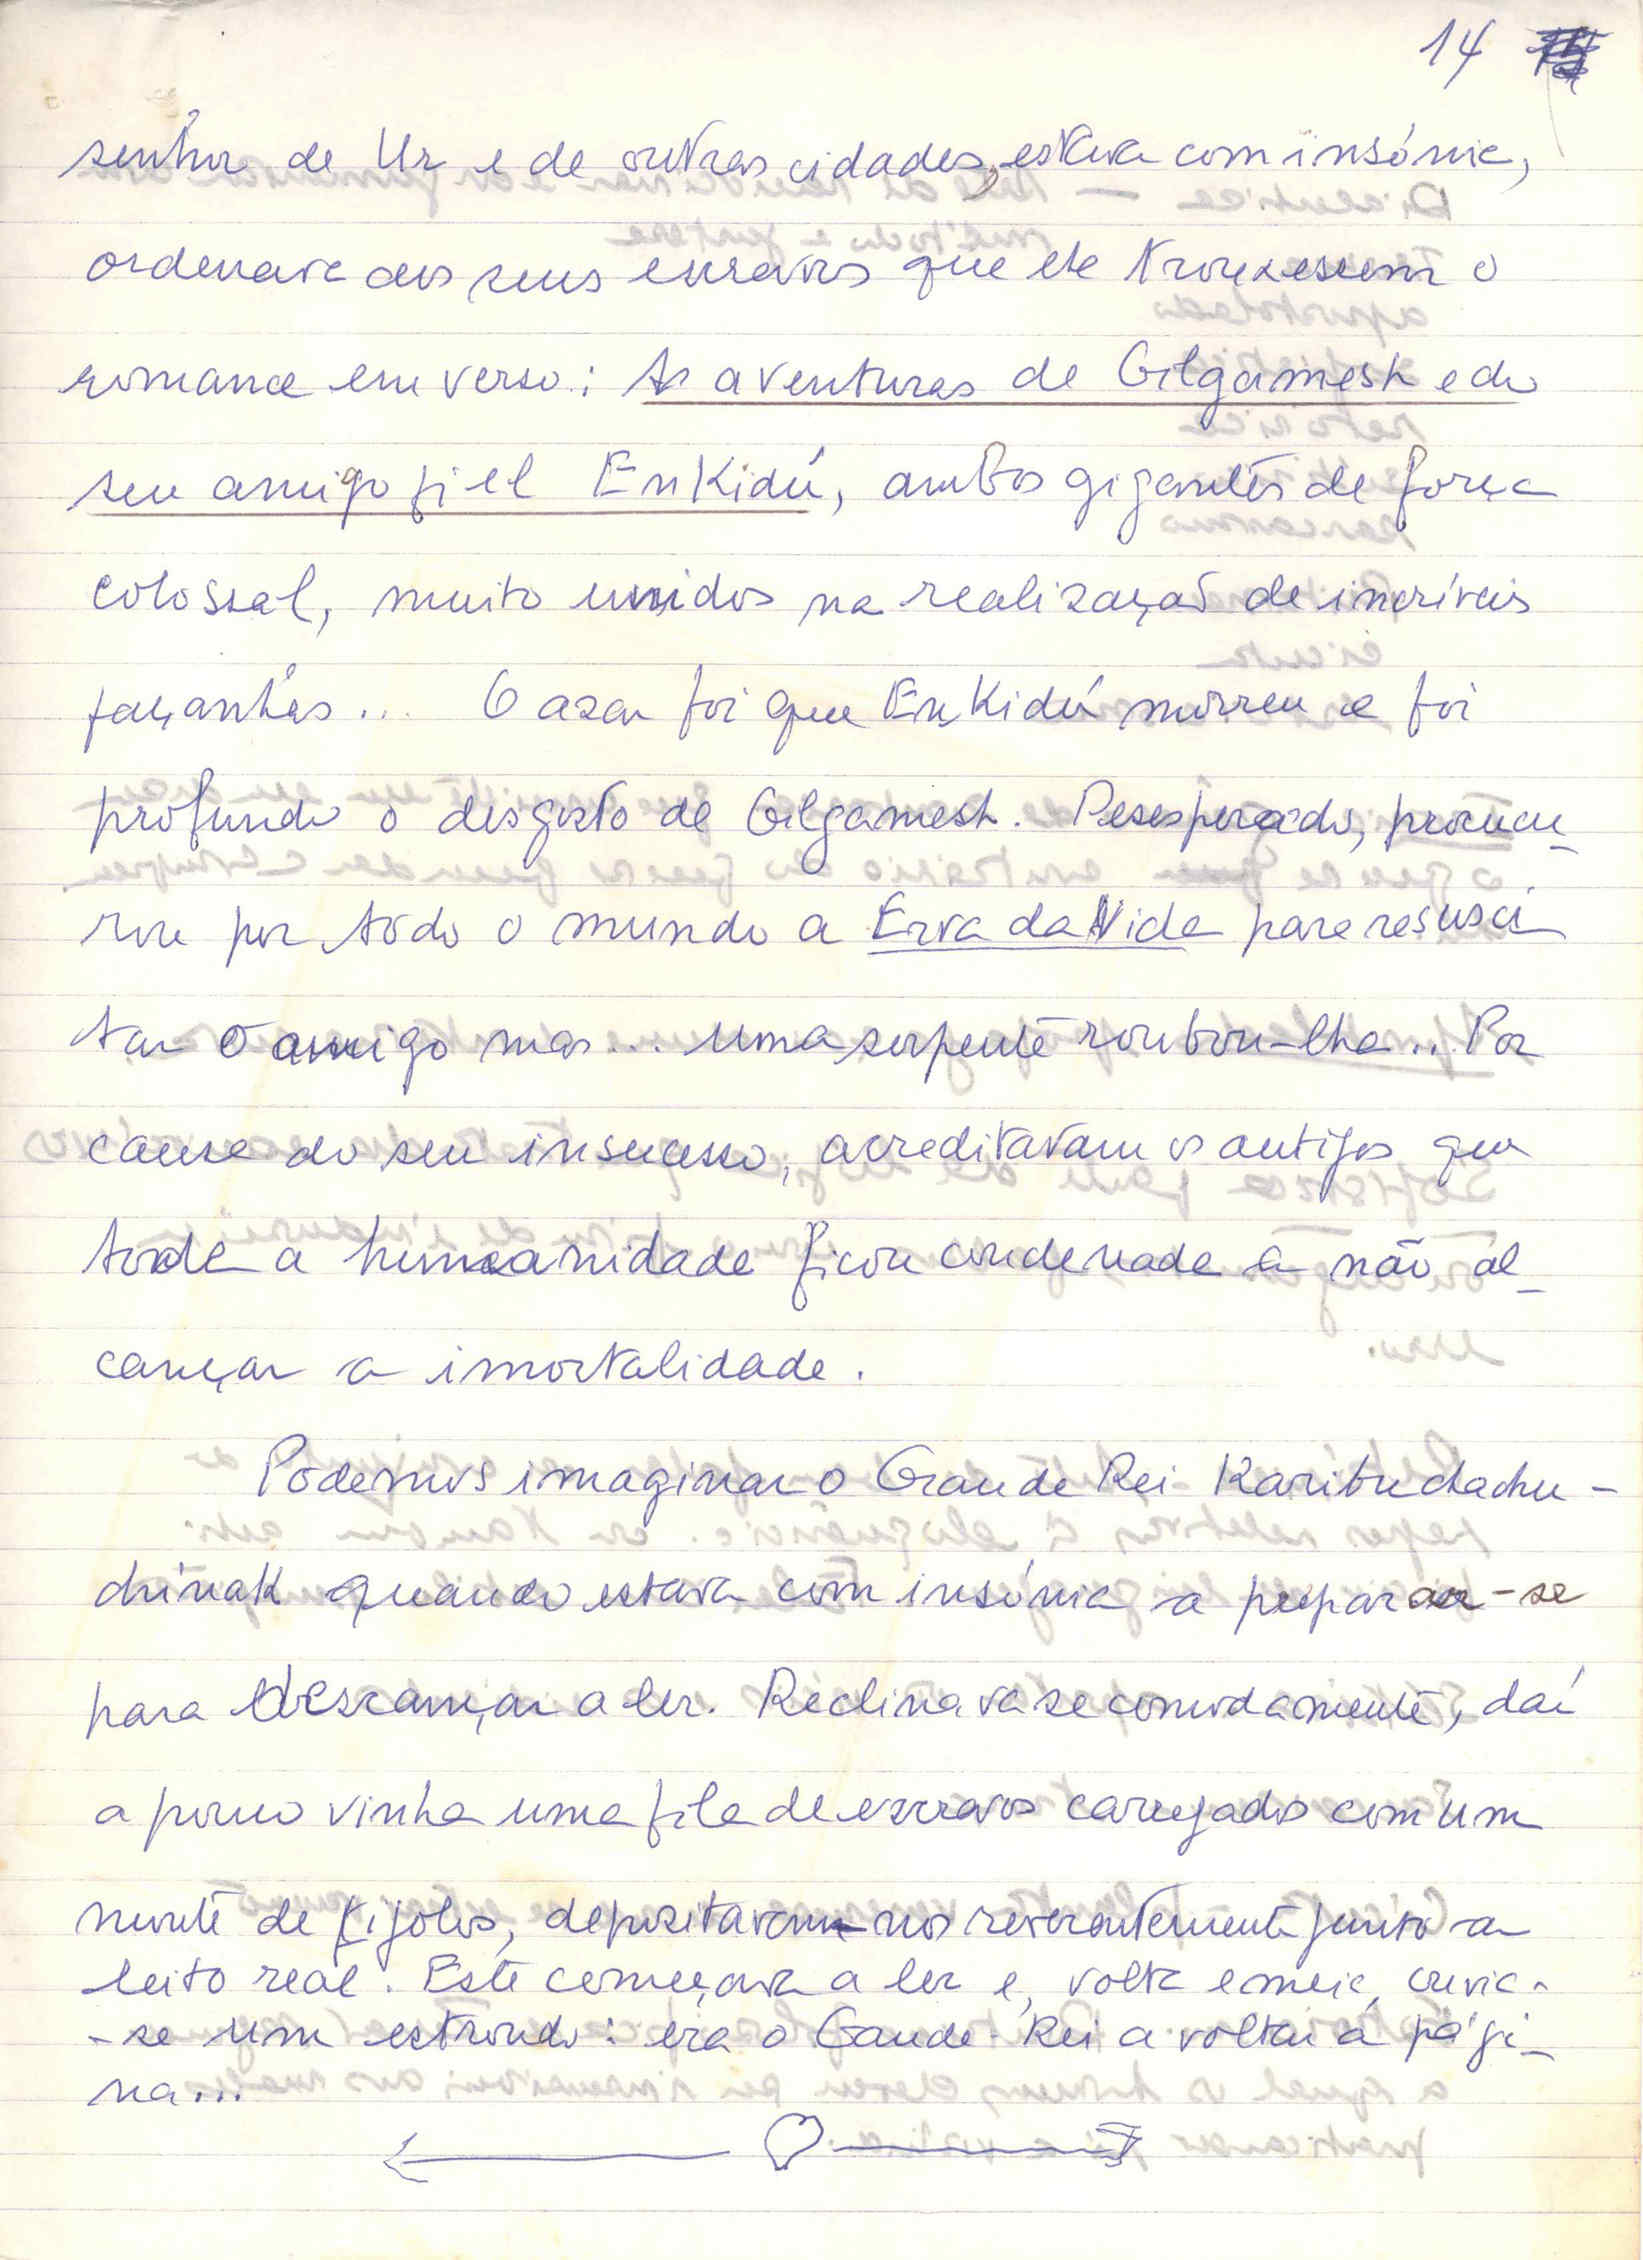 14
senhor de Ur e de outras cidades, estava com insónia,
ordenava aos seus escravos que lhe trouxessem o
romance em verso: As aventuras de Gilgamesh e do
seu amigo fiel Enkidú, ambos gigantes de força
colossal, muito unidos na realização de incríveis
façanhas... O azar foi que Enkidú morreu e foi
profundo o desgosto de Gilgamesh. Desesperado, procu-
rou por todo o mundo a Erva da Vida para resusci
tar o amigo mas... uma serpente roubou-lha... Por
causa do seu insucesso, acreditavam os antigos que
toda a humanidade ficou condenada a não al-
cançar a imortalidade.
Podemos imaginar o Grande Rei Karibuchachu-
chinak quando estava com insónia a preparar-se
para descançar a ler. Reclinava se comodamente, daí
a pouco vinha uma fila de escravos carregados com um
monte de tijolos, depositavam-nos reverentemente junto ao
leito real. Este começava a ler e, volta e meia, ouvia-
-se um estrondo: era o Grande Rei a voltar a pági-
na...